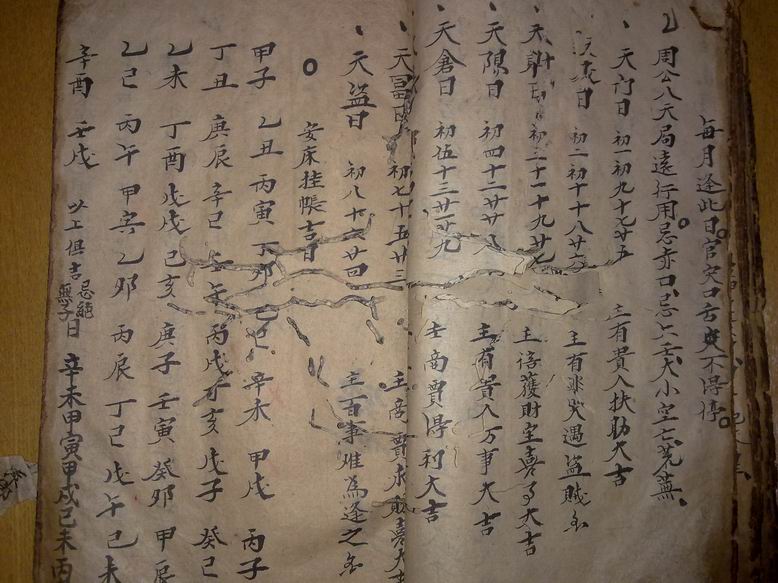 每月逢此日官災口舌不得停
乙周公八天局遠行用忌赤口忌上壬大小空亡荒蕪
天門日 初一初九十七廿五 主有貴人扶助大吉
日 初二初十十八廿六 主有 遇盜賊
天財 初三十一十九廿七 主 獲財宝喜 大吉
天陽日 初四十二廿廿八 主有貴人万事大吉
天倉日 初伍十三廿一廿九 主商賈淂利大吉
天富日 初七十五廿三 主商賈求財喜大
天盜日 初八十六廿四 主百事难為逢之
安床挂帳吉日
甲子 乙丑 丙寅 丁卯 辛未 甲戌 丙子
丁丑 庚辰 辛巳 壬午 丙戌 丁亥 戊子 癸巳
乙未 丁酉 戊戌 己亥 庚子 壬寅 癸卯 甲辰
乙巳 丙午 甲寅 乙卯 丙辰 丁巳 戊午 己未
辛酉 壬戌 以上俱吉 忌 無子日 辛未甲寅甲戌己未丙